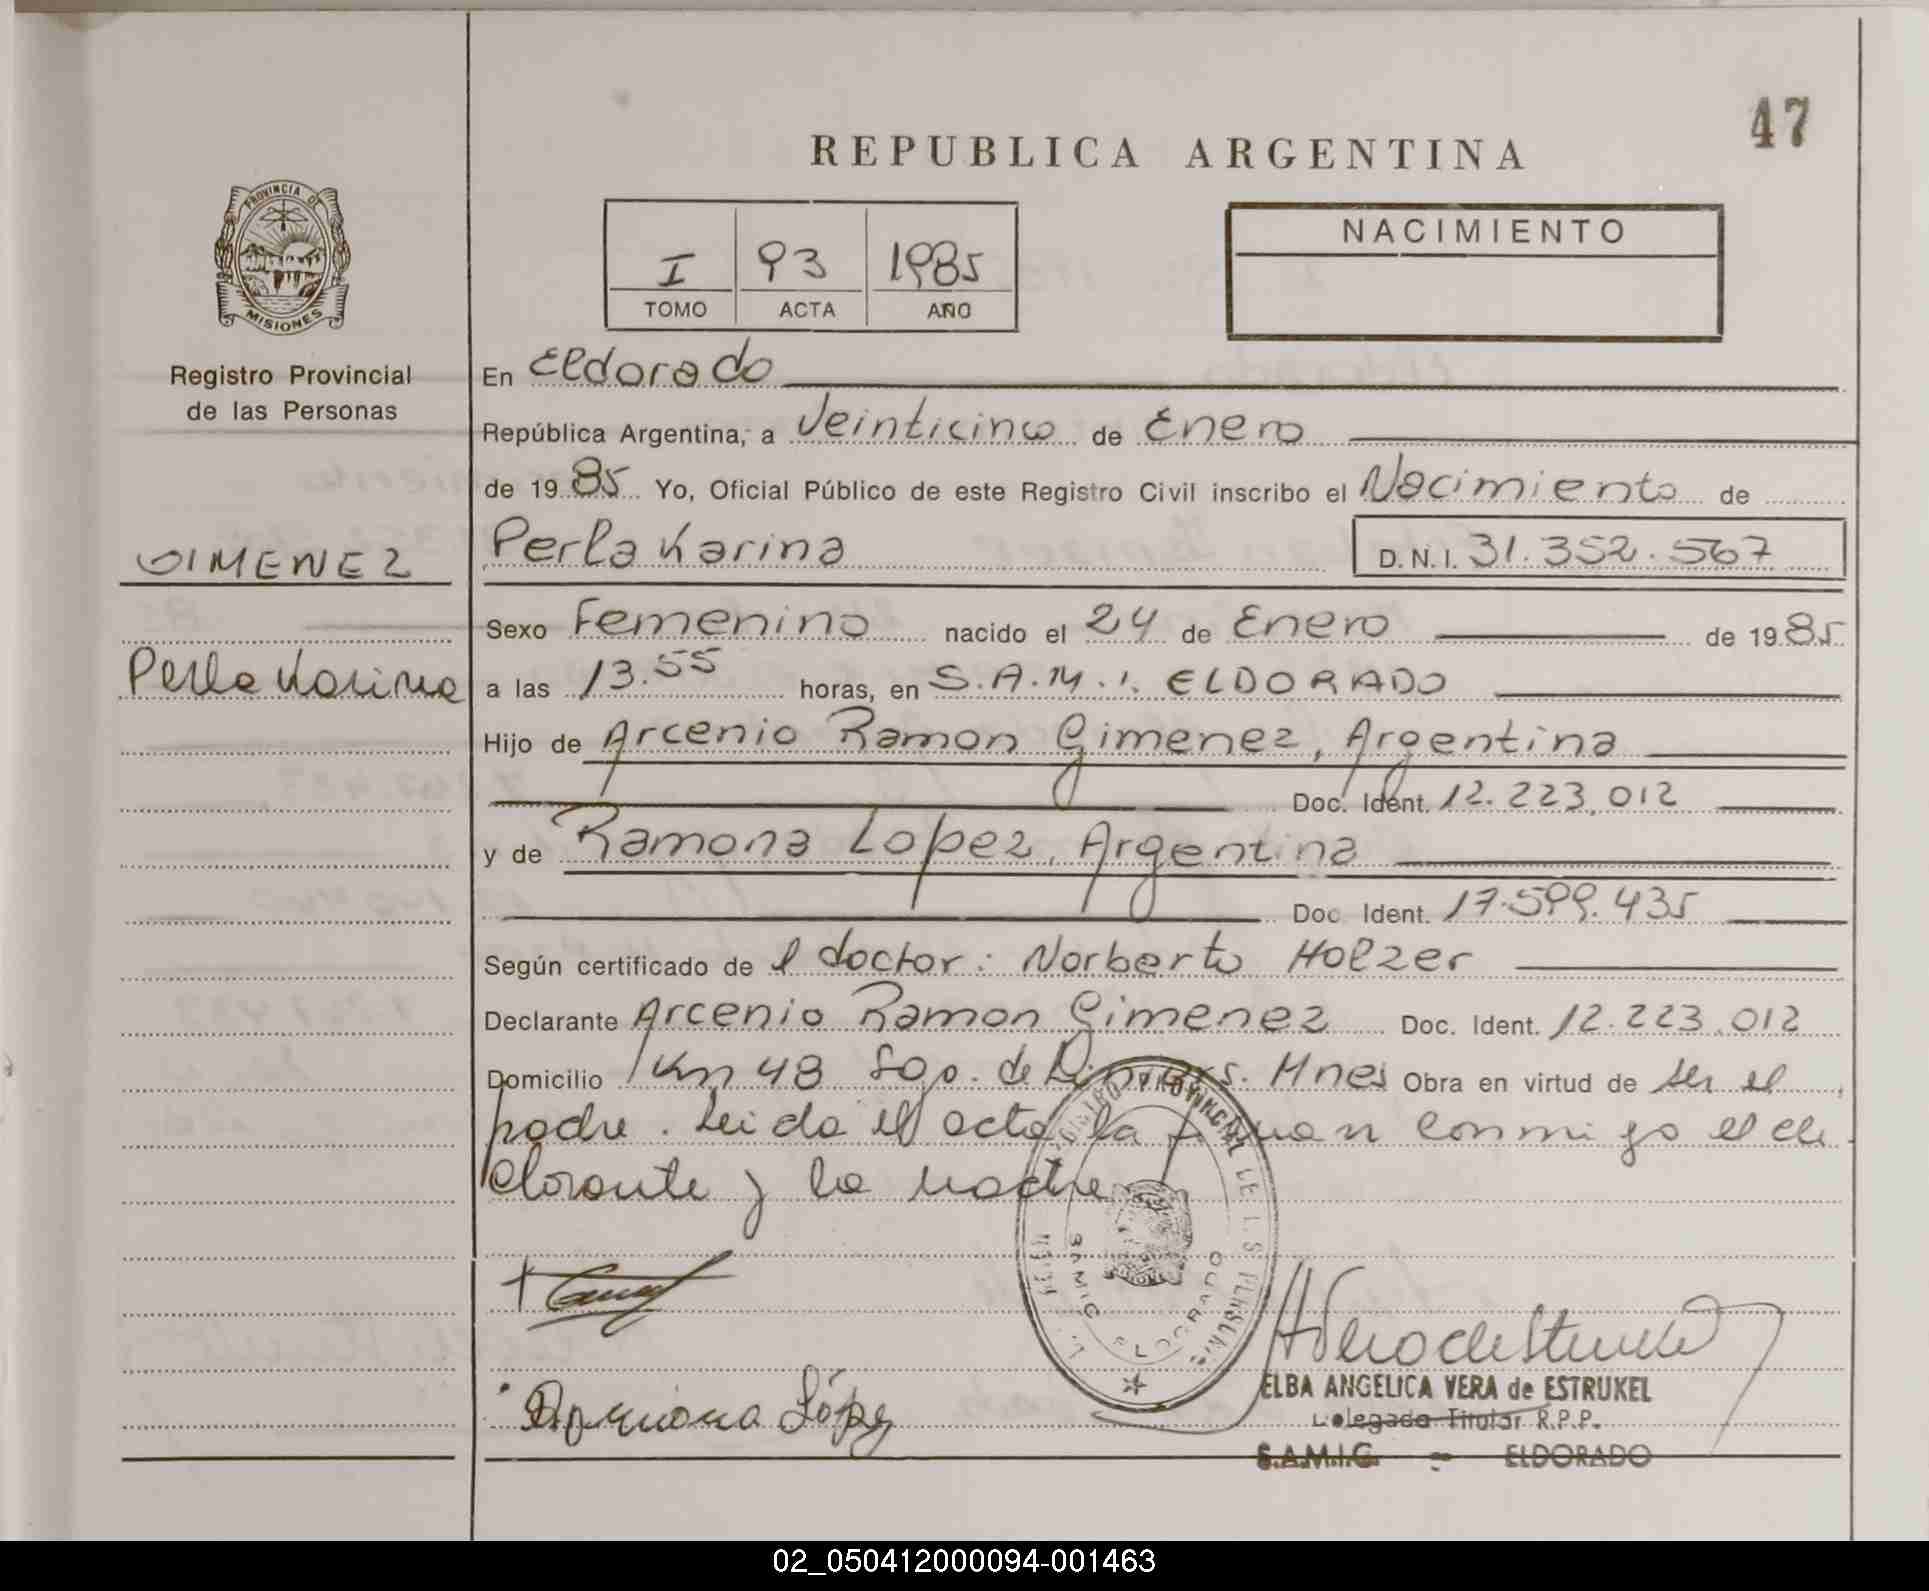 47
REPUBLICA ARGENTINA
PROVINCIA DE
MISIONES
I 93 1985
TOMO ACTA AÑO
NACIMIENTO
Registro Provincial
de las Personas
En Eldorado
República Argentina, a Veinticinco de Enero
de 19 85 Yo, Oficial Público de este Registro Civil inscribo el Nacimiento de
GIMENEZ
Perla Karina D.N.I. 31.352.567
Sexo Femenino nacido el 24 de Enero de 19 85
Perla Karina
a las 13.55 horas, en S.A.M.I. ELDORADO
Hijo de Arcenio Ramon Gimenez, Argentina
Doc. Ident. 12.223.012
y de Ramona Lopez, Argentina
Doc. Ident. 17.599.435
Según certificado de l doctor: Norberto Holzer
Declarante Arcenio Ramon Gimenez Doc. Ident. 12.223.012
Domicilio Km 48 Mnes Obra en virtud de ser el
padre. Leida el acta la firman conmigo el de
clarante y la madre
REGISTRO PROVINCIAL DE LAS PERSONAS
SAMIC ELDORADO
Ramona López
ELBA ANGELICA VERA de ESTRUKEL
Delegada Titular R.P.P.
S.A.M.I.C. - ELDORADO
02_050412000094-001463